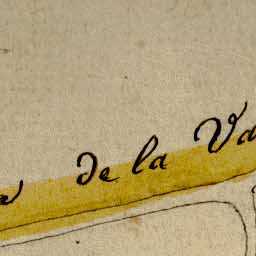 de la Va